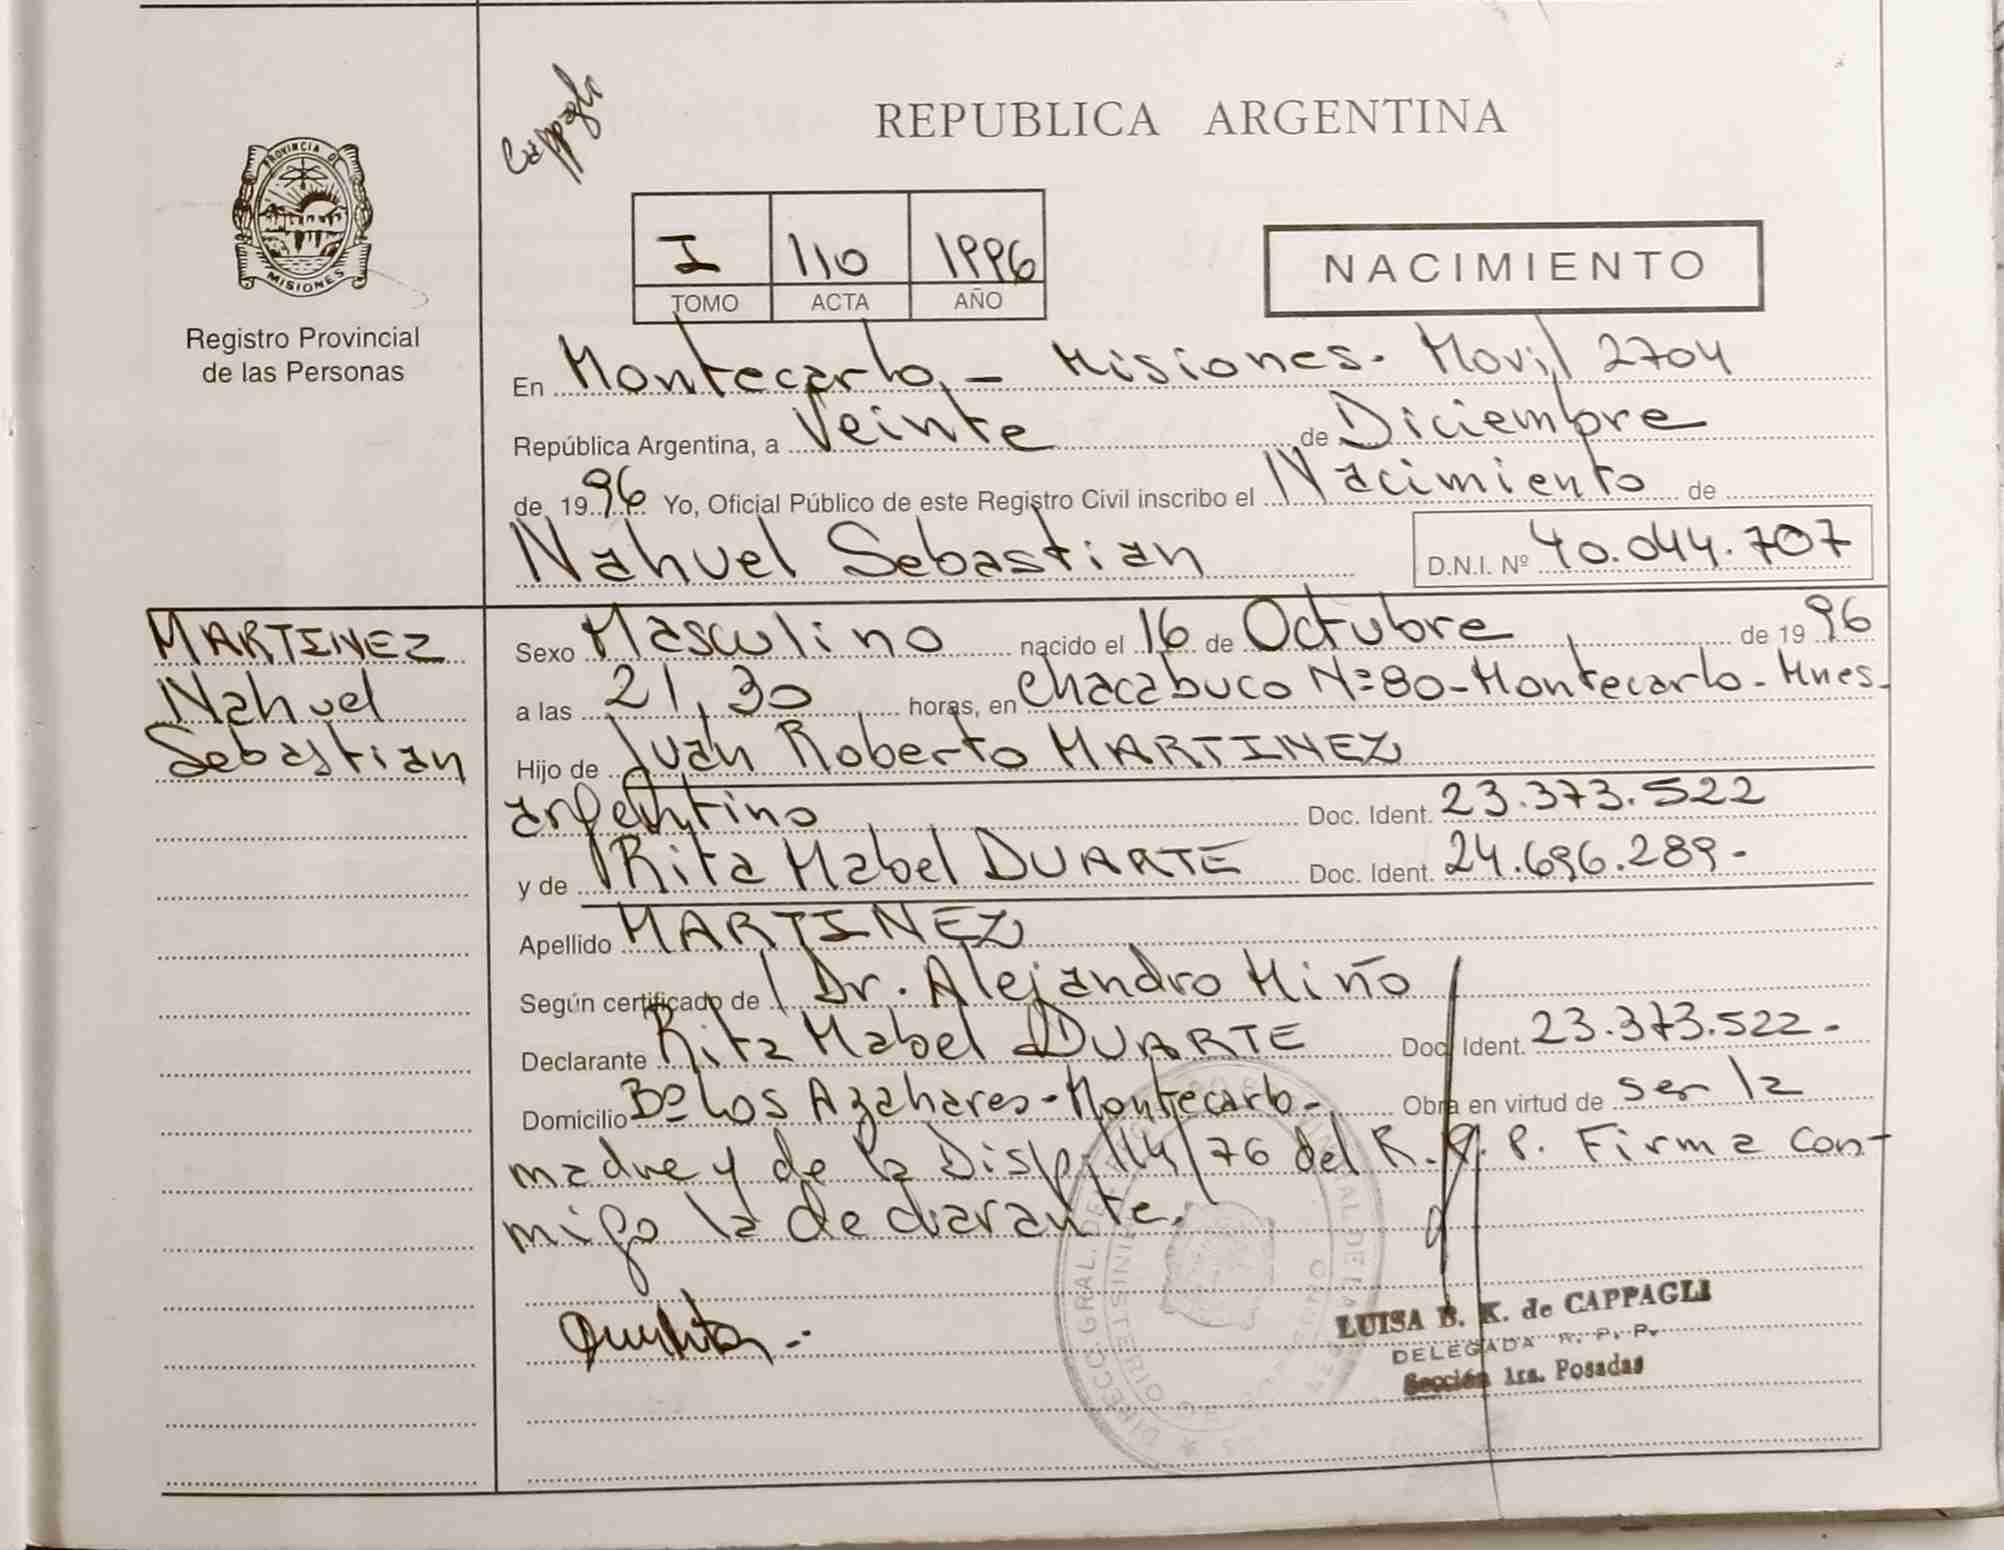 Cappagli
REPUBLICA ARGENTINA
PROVINCIA DE
MISIONES
Registro Provincial
de las Personas
I 110 1996
TOMO ACTA AÑO
NACIMIENTO
En Montecarlo - Misiones - Movil 2704
República Argentina, a Veinte de Diciembre
de 1996 Yo, Oficial Público de este Registro Civil inscribo el Nacimiento de
Nahuel Sebastian D.N.I. Nº 40.044.707
MARTINEZ
Nahuel
Sebastian
Sexo Masculino nacido el 16 de Octubre de 1996
a las 21,30 horas, en Chacabuco Nº 80 - Montecarlo - Mnes.
Hijo de Juan Roberto MARTINEZ
argentino Doc. Ident. 23.373.522
y de Rita Mabel DUARTE Doc. Ident. 24.696.289.-
Apellido MARTINEZ
Según certificado de Dr. Alejandro Miño
Declarante Rita Mabel DUARTE Doc. Ident. 23.373.522.-
Domicilio Bº Los Azahares - Montecarlo - Obra en virtud de ser la
madre y de la Disp. 114/76 del R.P.P. Firma con-
migo la declarante.
LUISA B. K. de CAPPAGLI
DELEGADA R. P. P.
Sección 1ra. Posadas